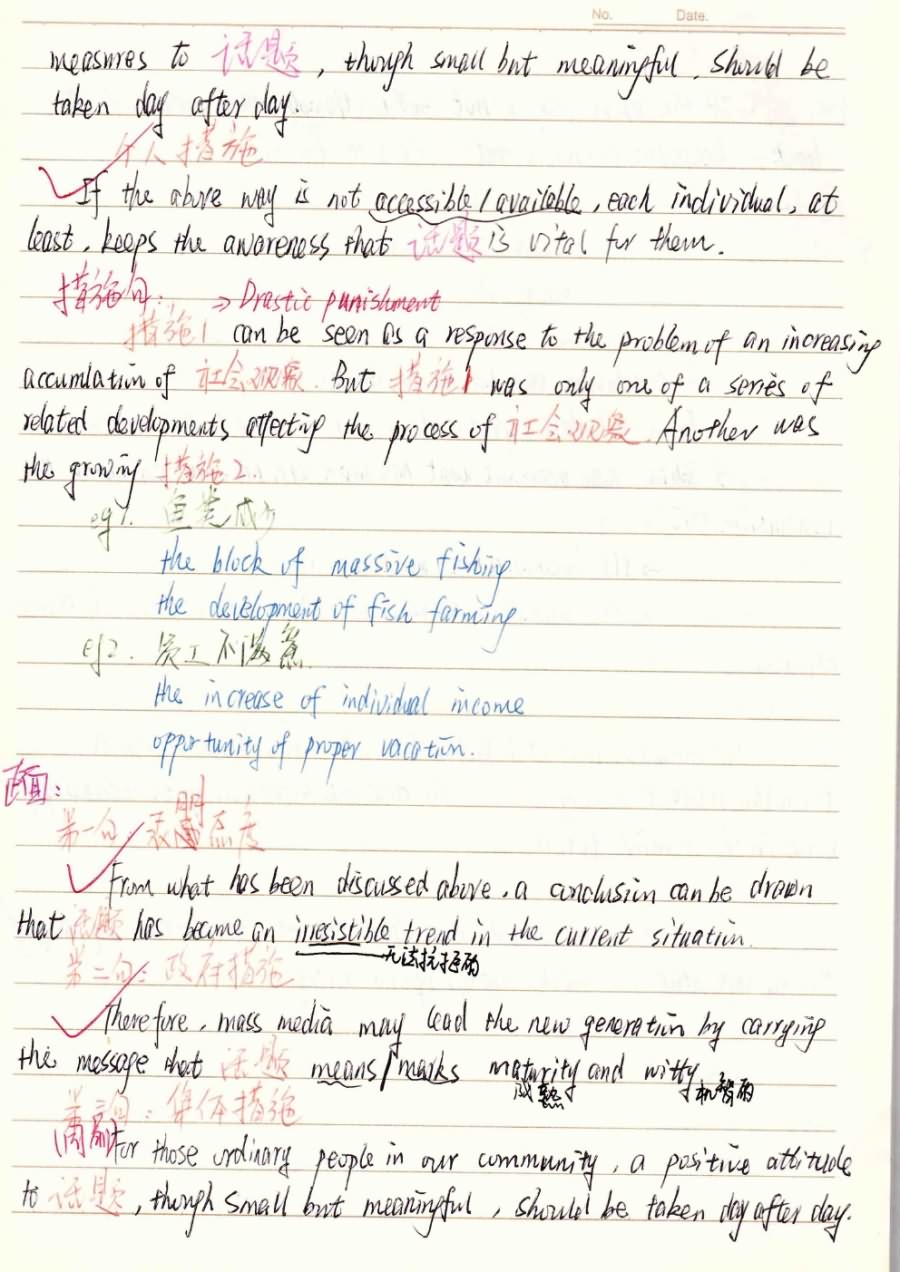 No. Date.
measures to 话题, though small but meaningful, should be
taken day after day.
个人措施
If the above way is not accessible/available, each individual, at
least, keeps the awareness that 话题 is vital for them.
措施句: → Drastic punishment
措施1 can be seen as a response to the problem of an increasing
accumlation of 社会现象. But 措施1 was only one of a series of
related developments affecting the process of 社会现象. Another was
the growing 措施2
eg1. 鱼类减少
the block of massive fishing
the development of fish farming
eg2. 员工不满意
the increase of individual income
opportunity of proper vacation.
正面:
第一句: 表明态度
From what has been discussed above, a conclusion can be drawn
that 话题 has become an irresistible trend in the current situation.
无法抗拒的
第二句: 政府措施
Therefore, mass media may lead the new generation by carrying
the message that 话题 means/marks maturity and witty
成熟 机智的
第三句: 集体措施
For those ordinary people in our community, a positive attitude
to 话题, though small but meaningful, should be taken day after day.